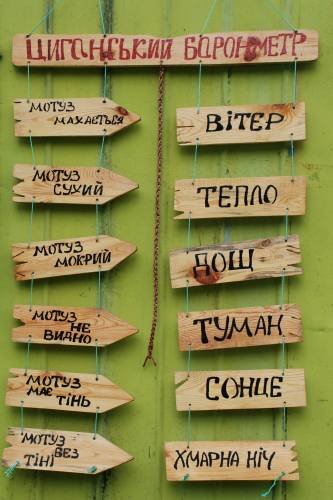 Циганський барометр
Мотуз
махається
Вітер
Мотуз
сухий
Тепло
Мотуз
мокрий
Дощ
Мотуз
не
видно
Туман
Мотуз
має
тінь
Сонце
Мотуз
без
тіні
Хмарна ніч